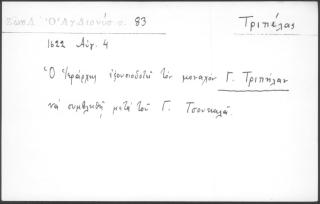 Ζώης Δ. Ὁ Ἅγ. Διονύσ. σ. 83
Τριπέλας
1622 Αὐγ. 4
Ὁ Ἱεράρχης ἐξουσιοδοτεῖ τὸν μοναχὸν Γ. Τριπήλαν
νὰ συμβληθῇ μετὰ τοῦ Γ. Τσουκαλᾶ.